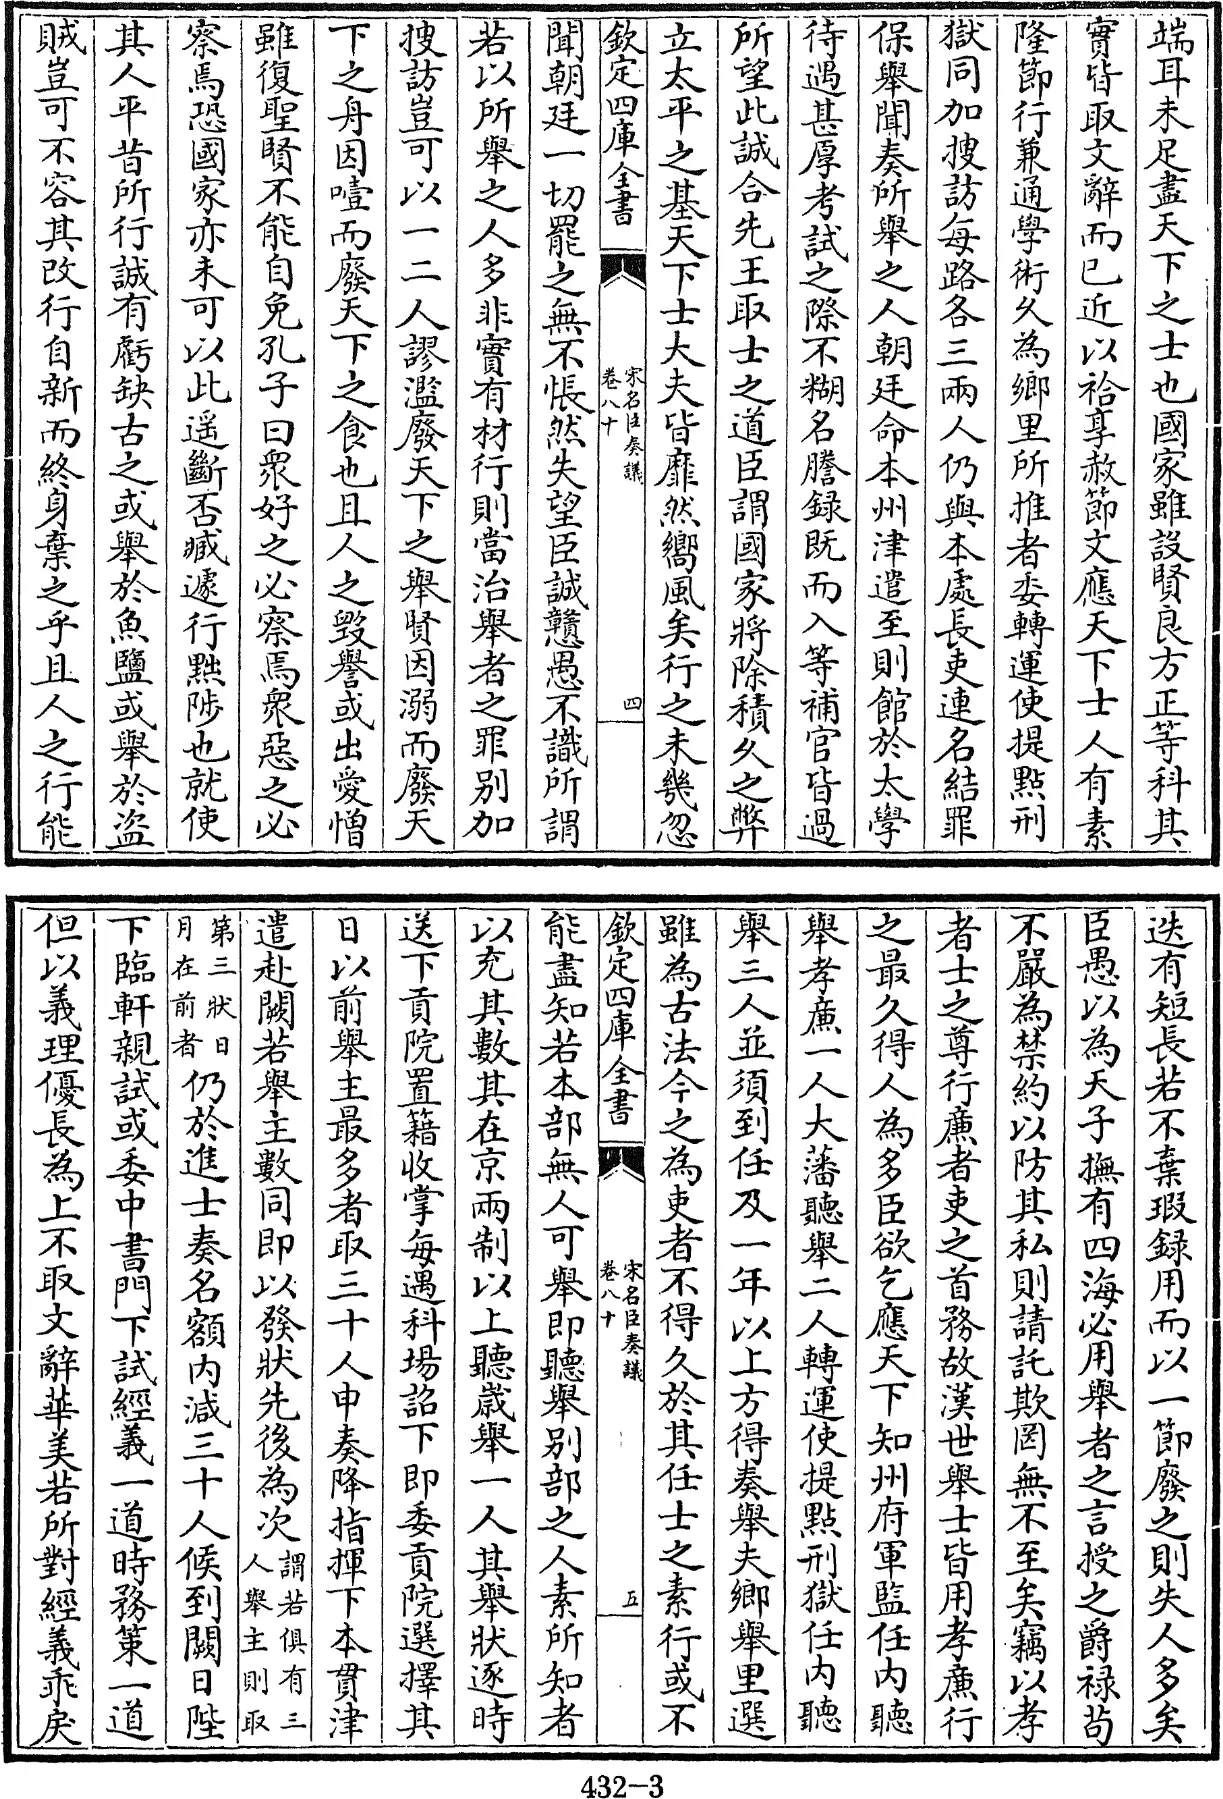 端耳未足盡天下之士也國家雖設賢良方正等科其
實皆取文辭而已近以祫享赦節文應天下士人有素
隆節行兼通學術久為鄉里所推者委轉運使提㸃刑
獄同加搜訪每路各三兩人仍與本處長吏連名結罪
保舉聞奏所舉之人朝廷命本州津遣至則館於太學
待遇甚厚考試之際不糊名謄録既而入等補官皆過
所望此誠合先王取士之道臣謂國家將除積久之弊
立太平之基天下士大夫皆靡然嚮風矣行之未幾忽
欽定四庫全書
宋名臣奏議
卷八十
四
聞朝廷一切罷之無不悵然失望臣誠戇愚不識所謂
若以所舉之人多非實有材行則當治舉者之罪别加
搜訪豈可以一二人謬濫廢天下之舉賢因溺而廢天
下之舟因噎而廢天下之食也且人之毀譽或出愛憎
雖復聖賢不能自免孔子曰衆好之必察焉衆惡之必
察焉恐國家亦未可以此遥斷否臧遽行黜陟也就使
其人平昔所行誠有虧缺古之或舉於魚鹽或舉於盜
賊豈可不容其改行自新而終身棄之乎且人之行能
迭有短長若不棄瑕録用而以一節廢之則失人多矣
臣愚以為天子撫有四海必用舉者之言授之爵禄苟
不嚴為禁約以防其私則請託欺罔無不至矣竊以孝
者士之尊行亷者吏之首務故漢世舉士皆用孝亷行
之最久得人為多臣欲乞應天下知州府軍監任内聽
舉孝亷一人大藩聽舉二人轉運使提㸃刑獄任内聽
舉三人並須到任及一年以上方得奏舉夫鄉舉里選
雖為古法今之為吏者不得久於其任士之素行或不
欽定四庫全書
宋名臣奏議
卷八十
五
能盡知若本部無人可舉即聽舉别部之人素所知者
以充其數其在京兩制以上聽歲舉一人其舉狀逐時
送下貢院置籍收掌每遇科場詔下即委貢院選擇其
日以前舉主最多者取三十人申奏降指揮下本貫津
遣赴闕若舉主數同即以發狀先後為次謂若俱有三人舉主則取
第三狀日月在前者仍於進士奏名額内減三十人候到闕日陛
下臨軒親試或委中書門下試經義一道時務策一道
但以義理優長為上不取文辭華美若所對經義乖戾
432-3